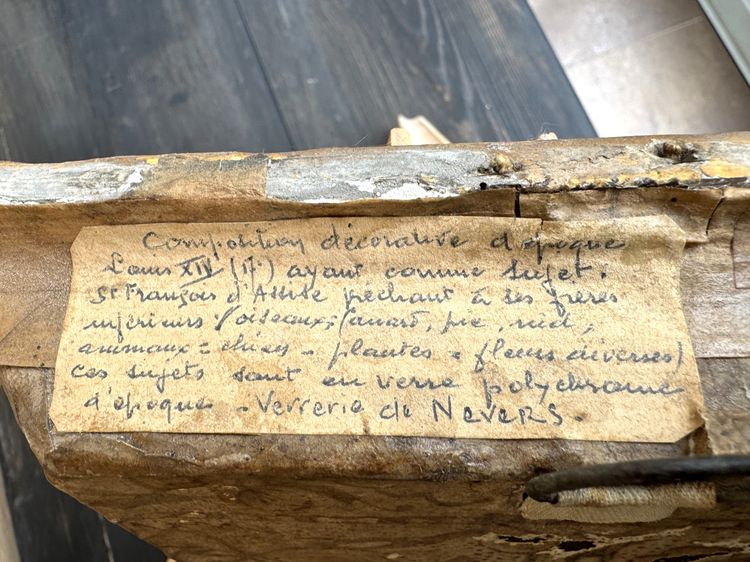 Composition décorative d'époque
Louis XIV (17e) ayant comme sujet.
St François d'Assise pêchant à ses frères
inférieurs : (oiseaux; canard, pie, nid,
animaux = chien - plantes = fleurs diverses)
Ces sujets sont en verre polychrome
d'époque - Verrerie de NEVERS.